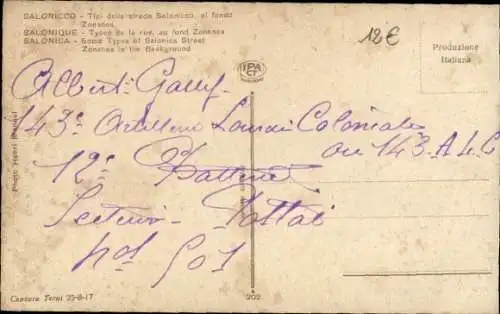 SALONICCO - Tipi della strada Salonicco, al fondo
Zonanes
SALONIQUE - Types de la rue, au fond Zouaves
SALONICA - Some Types of Salonica Street
Zouaves in the Background
12€
Produzione
Italiana
IPA
CT
Albert
143e Lourde Coloniale
ou 143 A.L.C
12e Batterie
Secteur Postal
no 501
Censura Torni 25-8-17
202